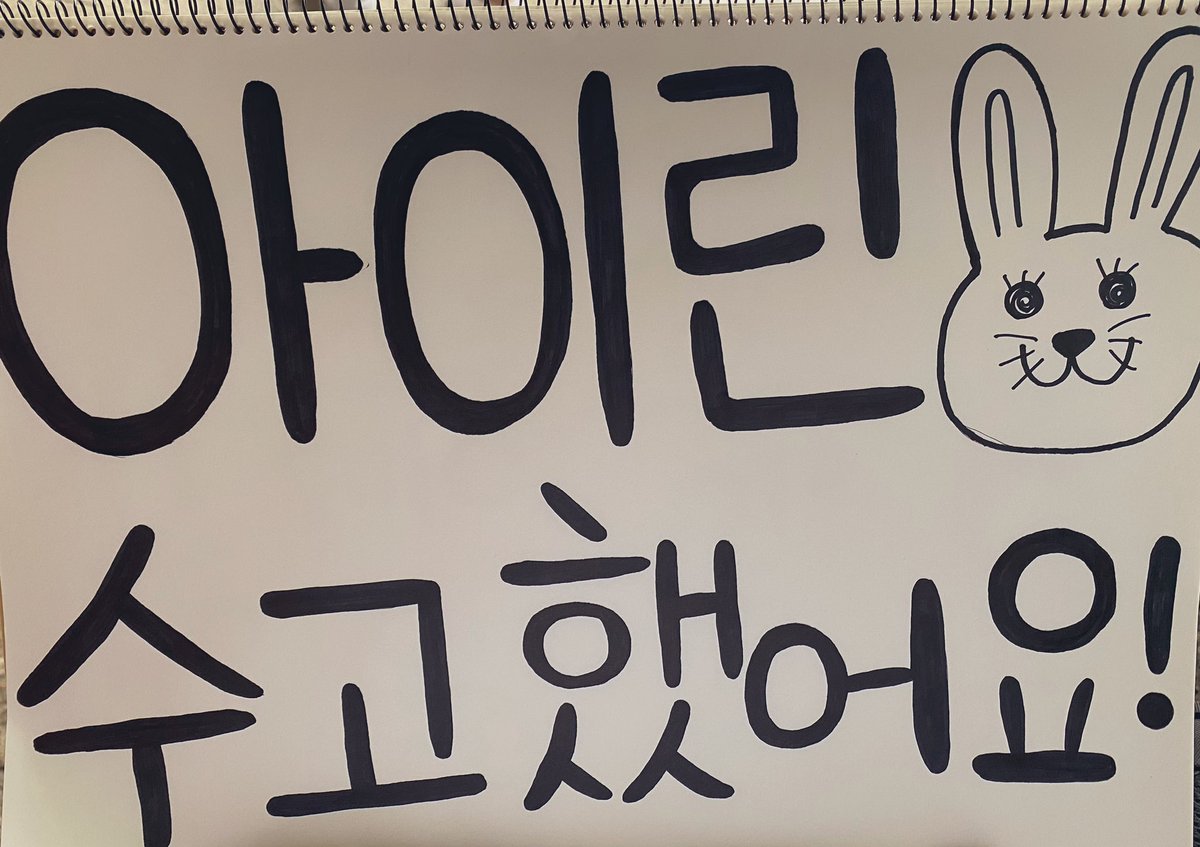 아이린
수고했어요!